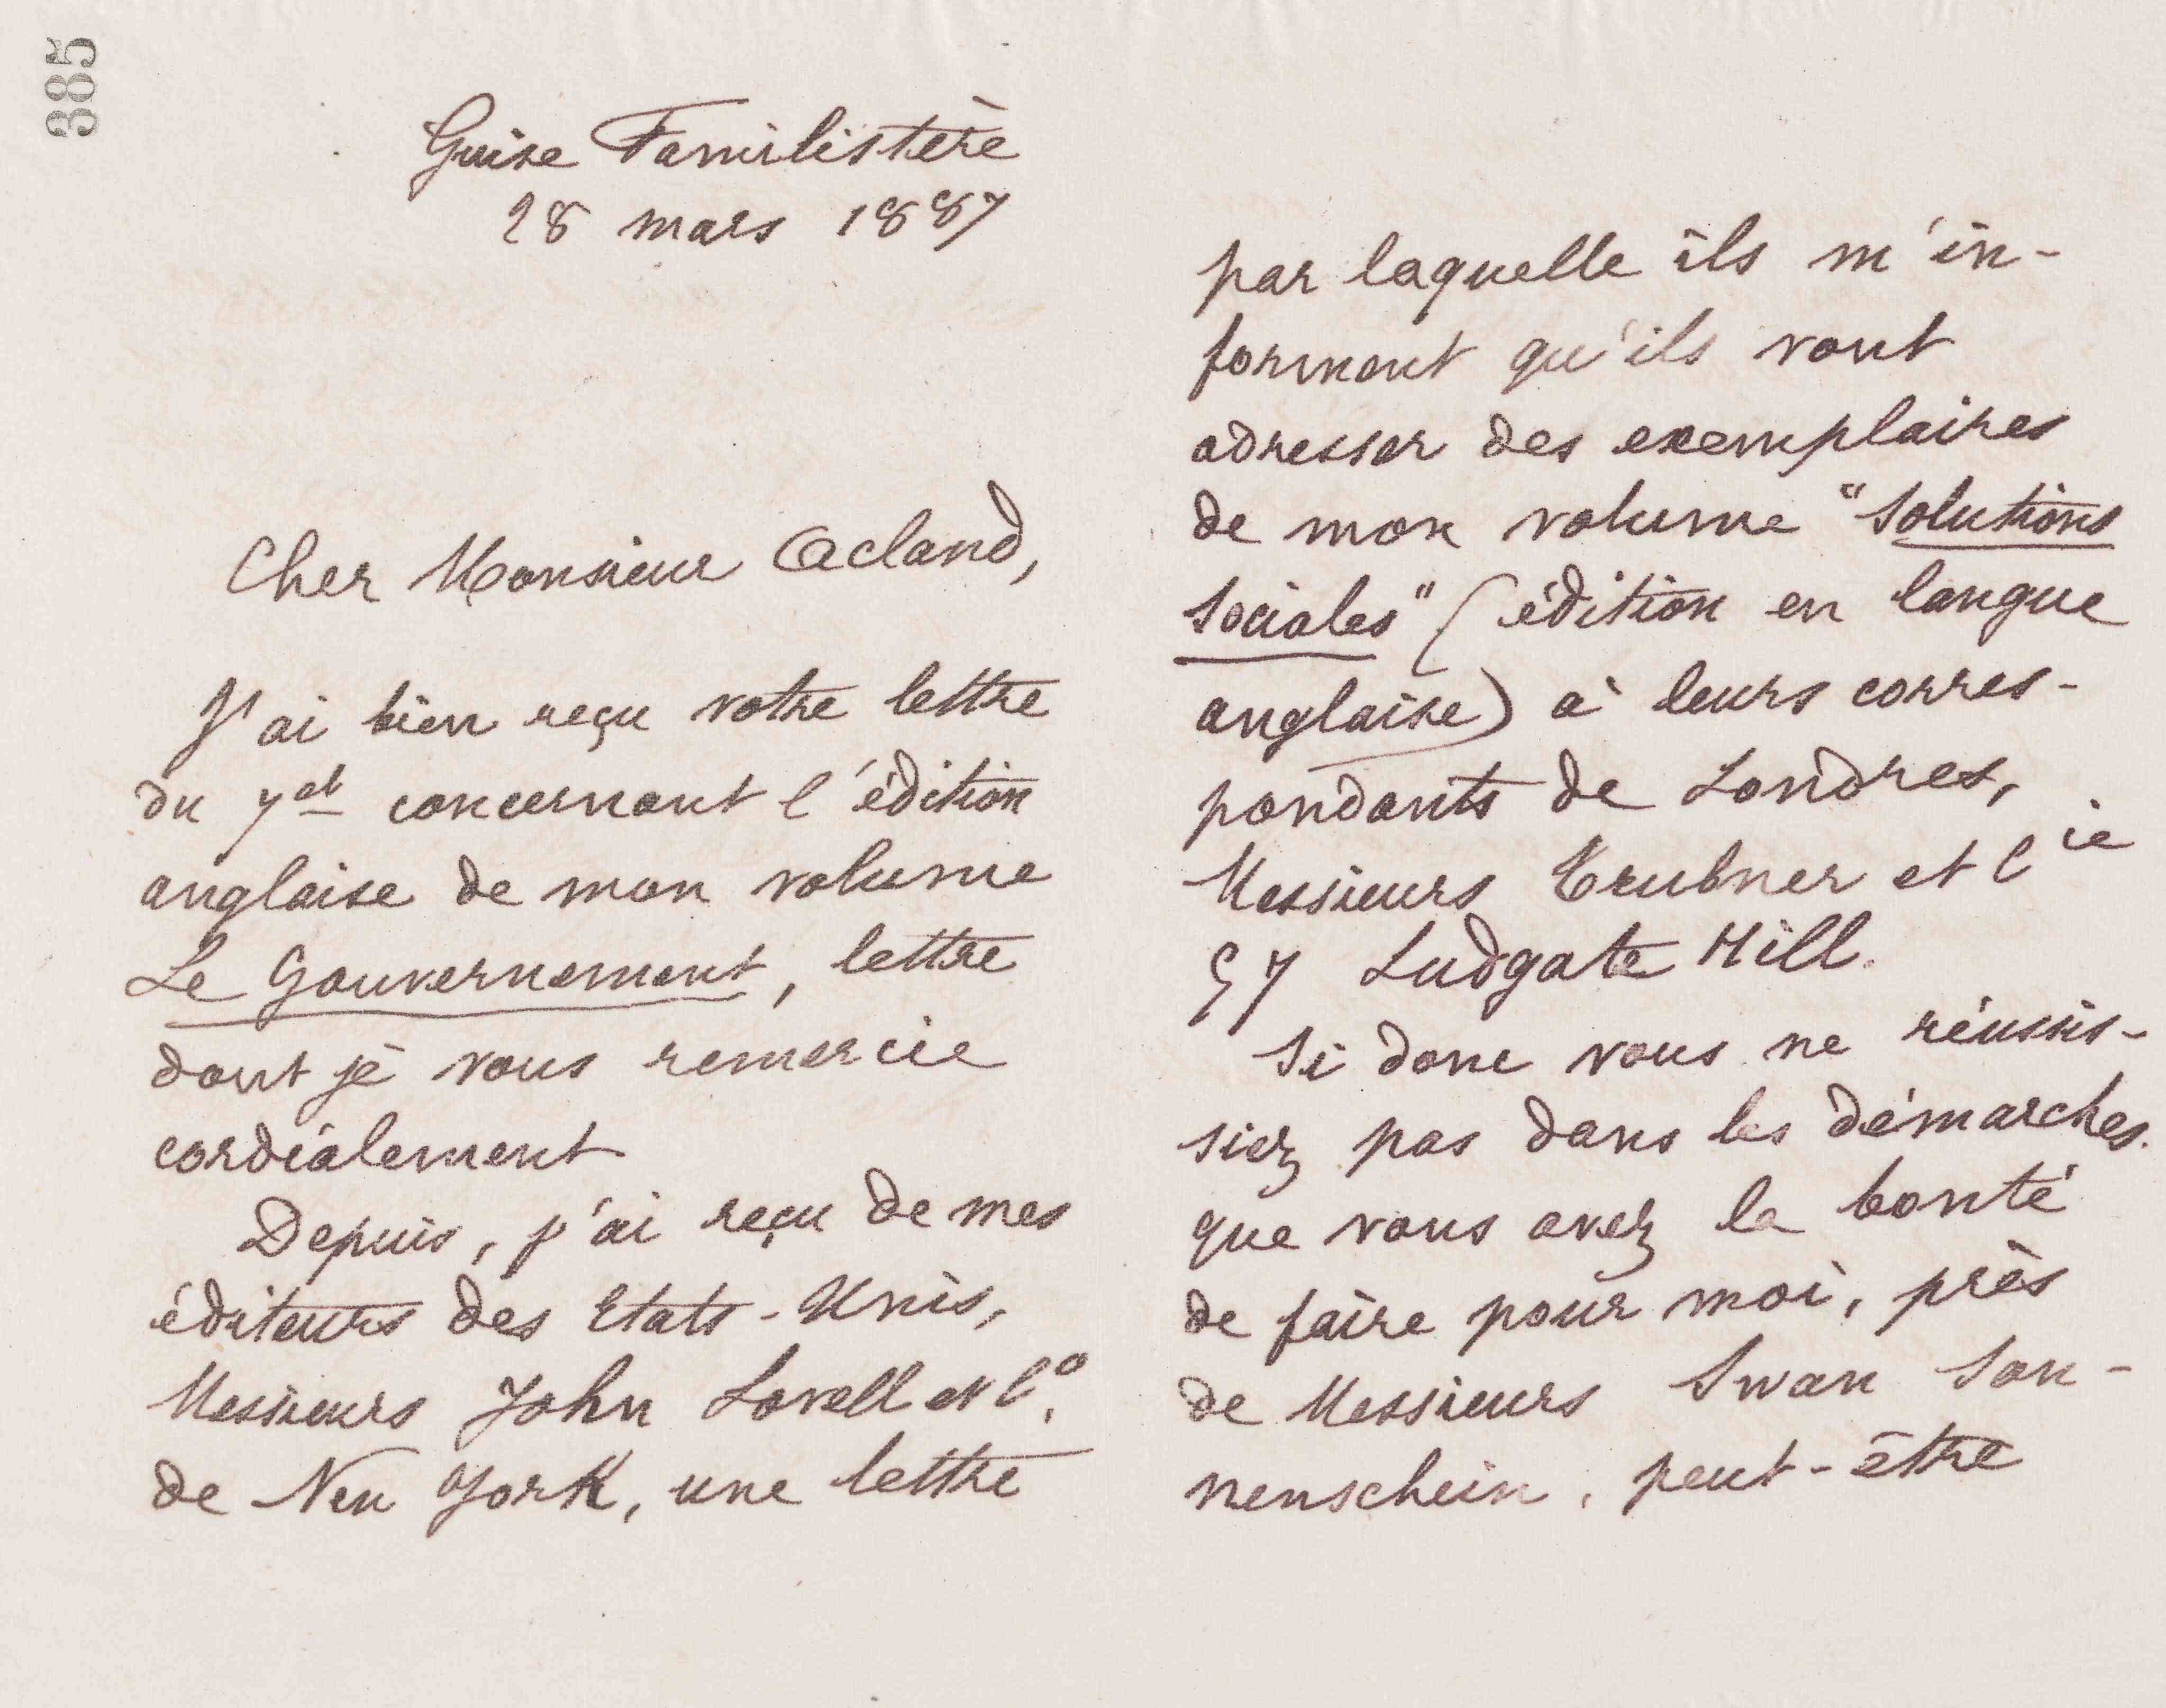 385
Guise Familistère
28 mars 1887
Cher Monsieur Acland,
J'ai bien reçu votre lettre
du 7 ct concernant l'édition
anglaise de mon volume
Le Gouvernement, lettre
dont je vous remercie
cordialement
Depuis, j'ai reçu de mes
éditeurs des Etats-Unis,
Messieurs John Lovell et Co.
de New York, une lettre
par laquelle ils m'in-
forment qu'ils vont
adresser des exemplaires
de mon volume "Solutions
Sociales" (édition en langue
anglaise) à leurs corres-
pondants de Londres,
Messieurs Trubner et Cie
57 Ludgate Hill.
Si donc vous ne réussis-
siez pas dans les démarches
que vous avez la bonté
de faire pour moi, près
de Messieurs Swan Son-
nenschein, peut-être